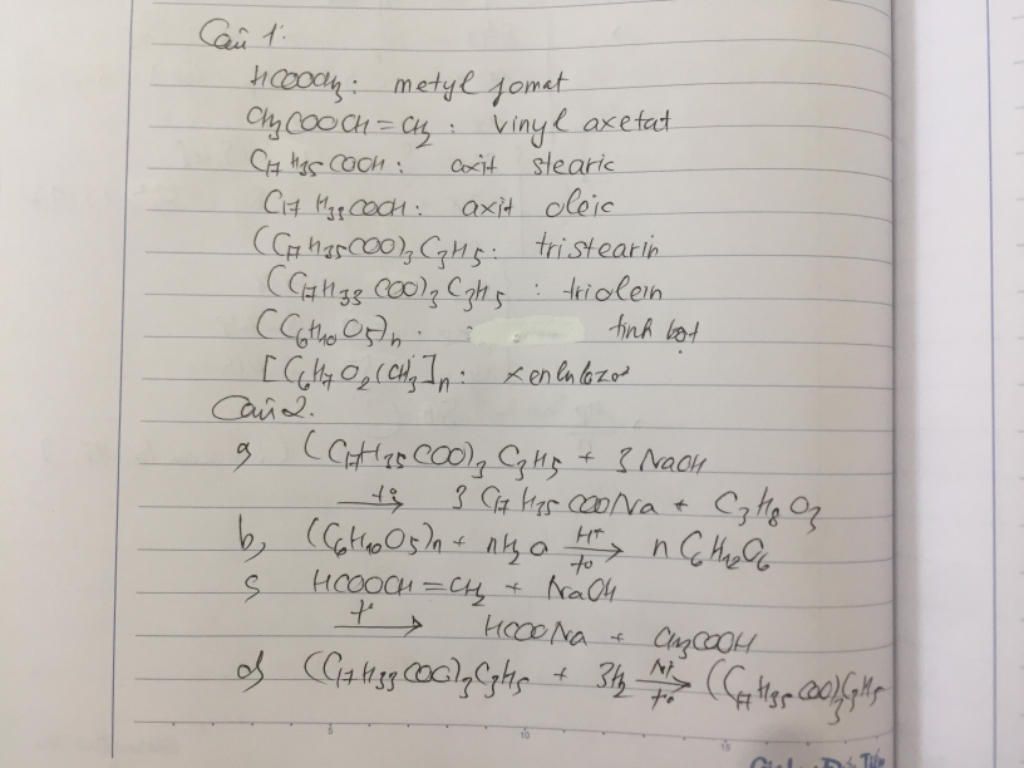 Câu 1:
HCOOCH3: metyl fomat
CH3COOCH=CH2: vinyl axetat
C17H35COOH: axit stearic
C17H33COOH: axit oleic
(C17H35COO)3C3H5: tristearin
(C17H33COO)3C3H5: triolein
(C6H10O5)n: tinh bột
[C6H7O2(CH3]n: xenlulozơ
Câu 2.
a, (C17H35COO)3C3H5 + 3NaOH
t° → 3C17H35COONa + C3H8O3
b, (C6H10O5)n + nH2O H+ → t° nC6H12O6
c, HCOOCH=CH2 + NaOH
t° → HCOONa + CH3COOH
d, (C17H33COO)3C3H5 + 3H2 Ni → t° (C17H35COO)3C3H5
5 10 15